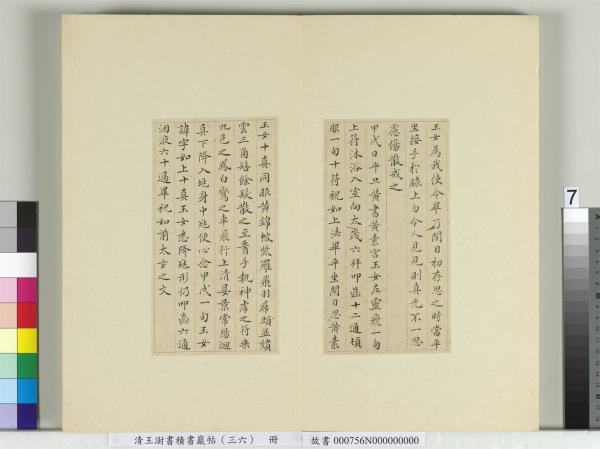 玉女為我使令畢乃開目初存思之時當平
坐接手於膝上勿令人見見則真光不一思
慮傷散戒之
甲戌日平旦黃書黃素宮玉女左靈飛一旬
上符沐浴入室向太歲六拜叩齒十二通頓
服一旬十符祝如上法畢平坐閉目思黃素
玉女十真同服黃錦帔紫羅飛羽裙頭並頹
雲三角髻餘髮散之至要手執神虎之符乘
九色之鳳白鸞之車飛行上清晏景常陽迴
真下降入兆身中兆便心念甲戌一旬玉女
諱字如上十真玉女悉降兆形仍叩齒六通
咽液六十過畢祝如前太玄之文
清王澍書積書巖帖（三六） 冊
故書 000756N000000000
7